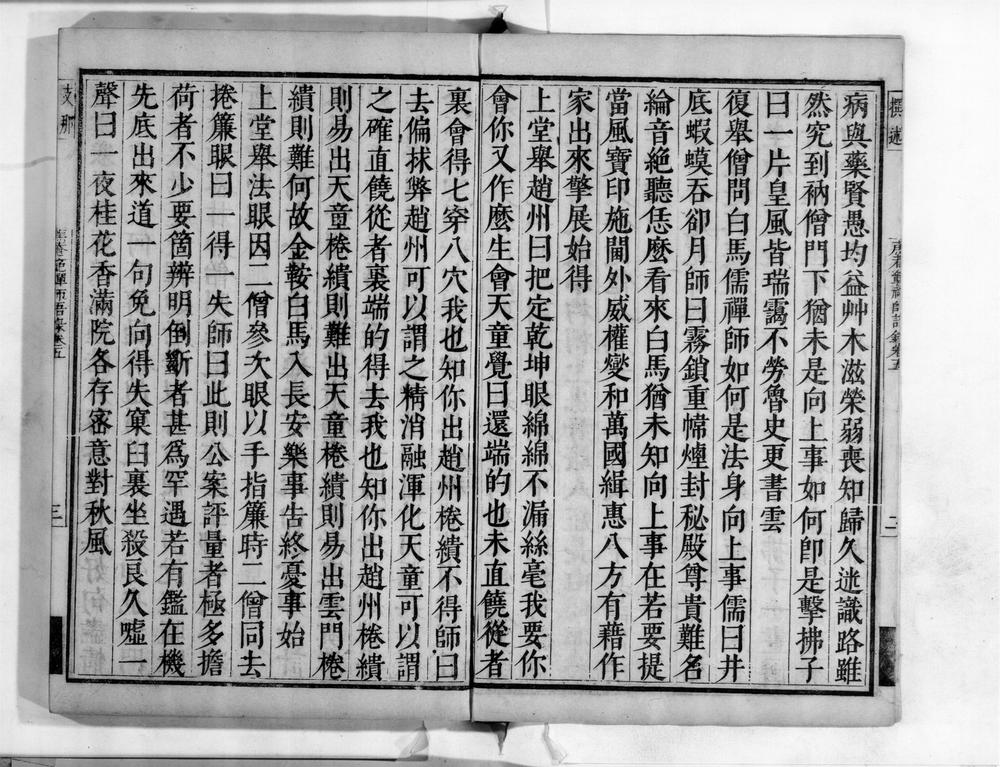 撰述
病與藥賢愚均益艸木滋榮弱喪知歸久迷識路雖
然究到衲僧門下猶未是向上事如何卽是擊拂子
曰一片皇風皆瑞靄不勞魯史更書雲
復舉僧問白馬儒禪師如何是法身向上事儒曰井
底蝦蟆吞卻月師曰霧鎖重幃煙封秘殿尊貴難名
綸音絕聽恁麼看來白馬猶未知向上事在若要提
當風寶印施閫外威權燮和萬國緝惠八方有藉作
家出來擎展始得
上堂舉趙州曰把定乾坤眼綿綿不漏絲毫我要你
會你又作麼生會天童覺曰還端的也未直饒從者
裏會得七穿八穴我也知你出趙州棬繢不得師曰
去偏捄弊趙州可以謂之精消融渾化天童可以謂
之確直饒從者裏端的得去我也知你出趙州棬繢
則易出天童棬繢則難出天童棬繢則易出雲門棬
繢則難何故金鞍白馬入長安樂事告終憂事始
上堂舉法眼因二僧參次眼以手指簾時二僧同去
捲簾眼曰一得一失師曰此則公案評量者極多擔
荷者不少要箇辨明倒斷者甚爲罕遇若有鑑在機
先底出來道一句免向得失窠臼裏坐殺良久噓一
聲曰一夜桂花香滿院各存密意對秋風
支那